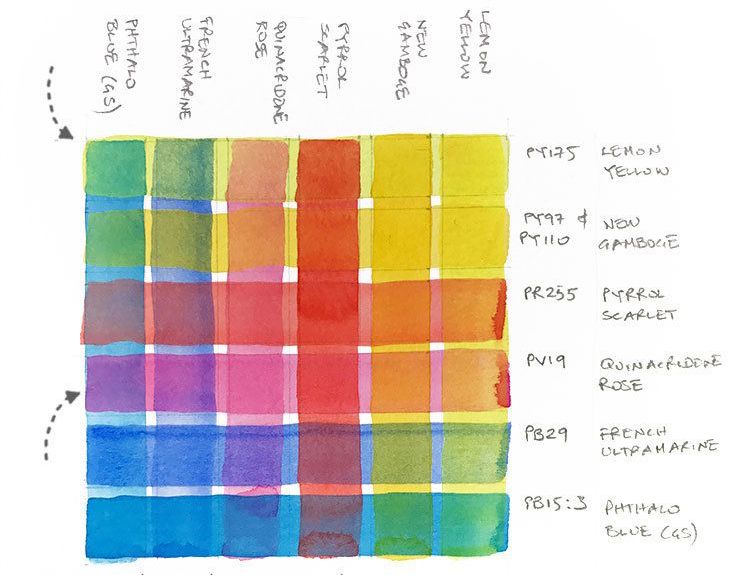 PHTHALO
BLUE (GS)
FRENCH
ULTRAMARINE
QUINACRIDONE
ROSE
PYRROL
SCARLET
NEW
GAMBOGE
LEMON
YELLOW
PY175 LEMON
YELLOW
PY97 &
PY110
NEW
GAMBOGE
PR255 PYRROL
SCARLET
PV19 QUINACRIDONE
ROSE
PB29 FRENCH
ULTRAMARINE
PB15:3 PHTHALO
BLUE (GS)